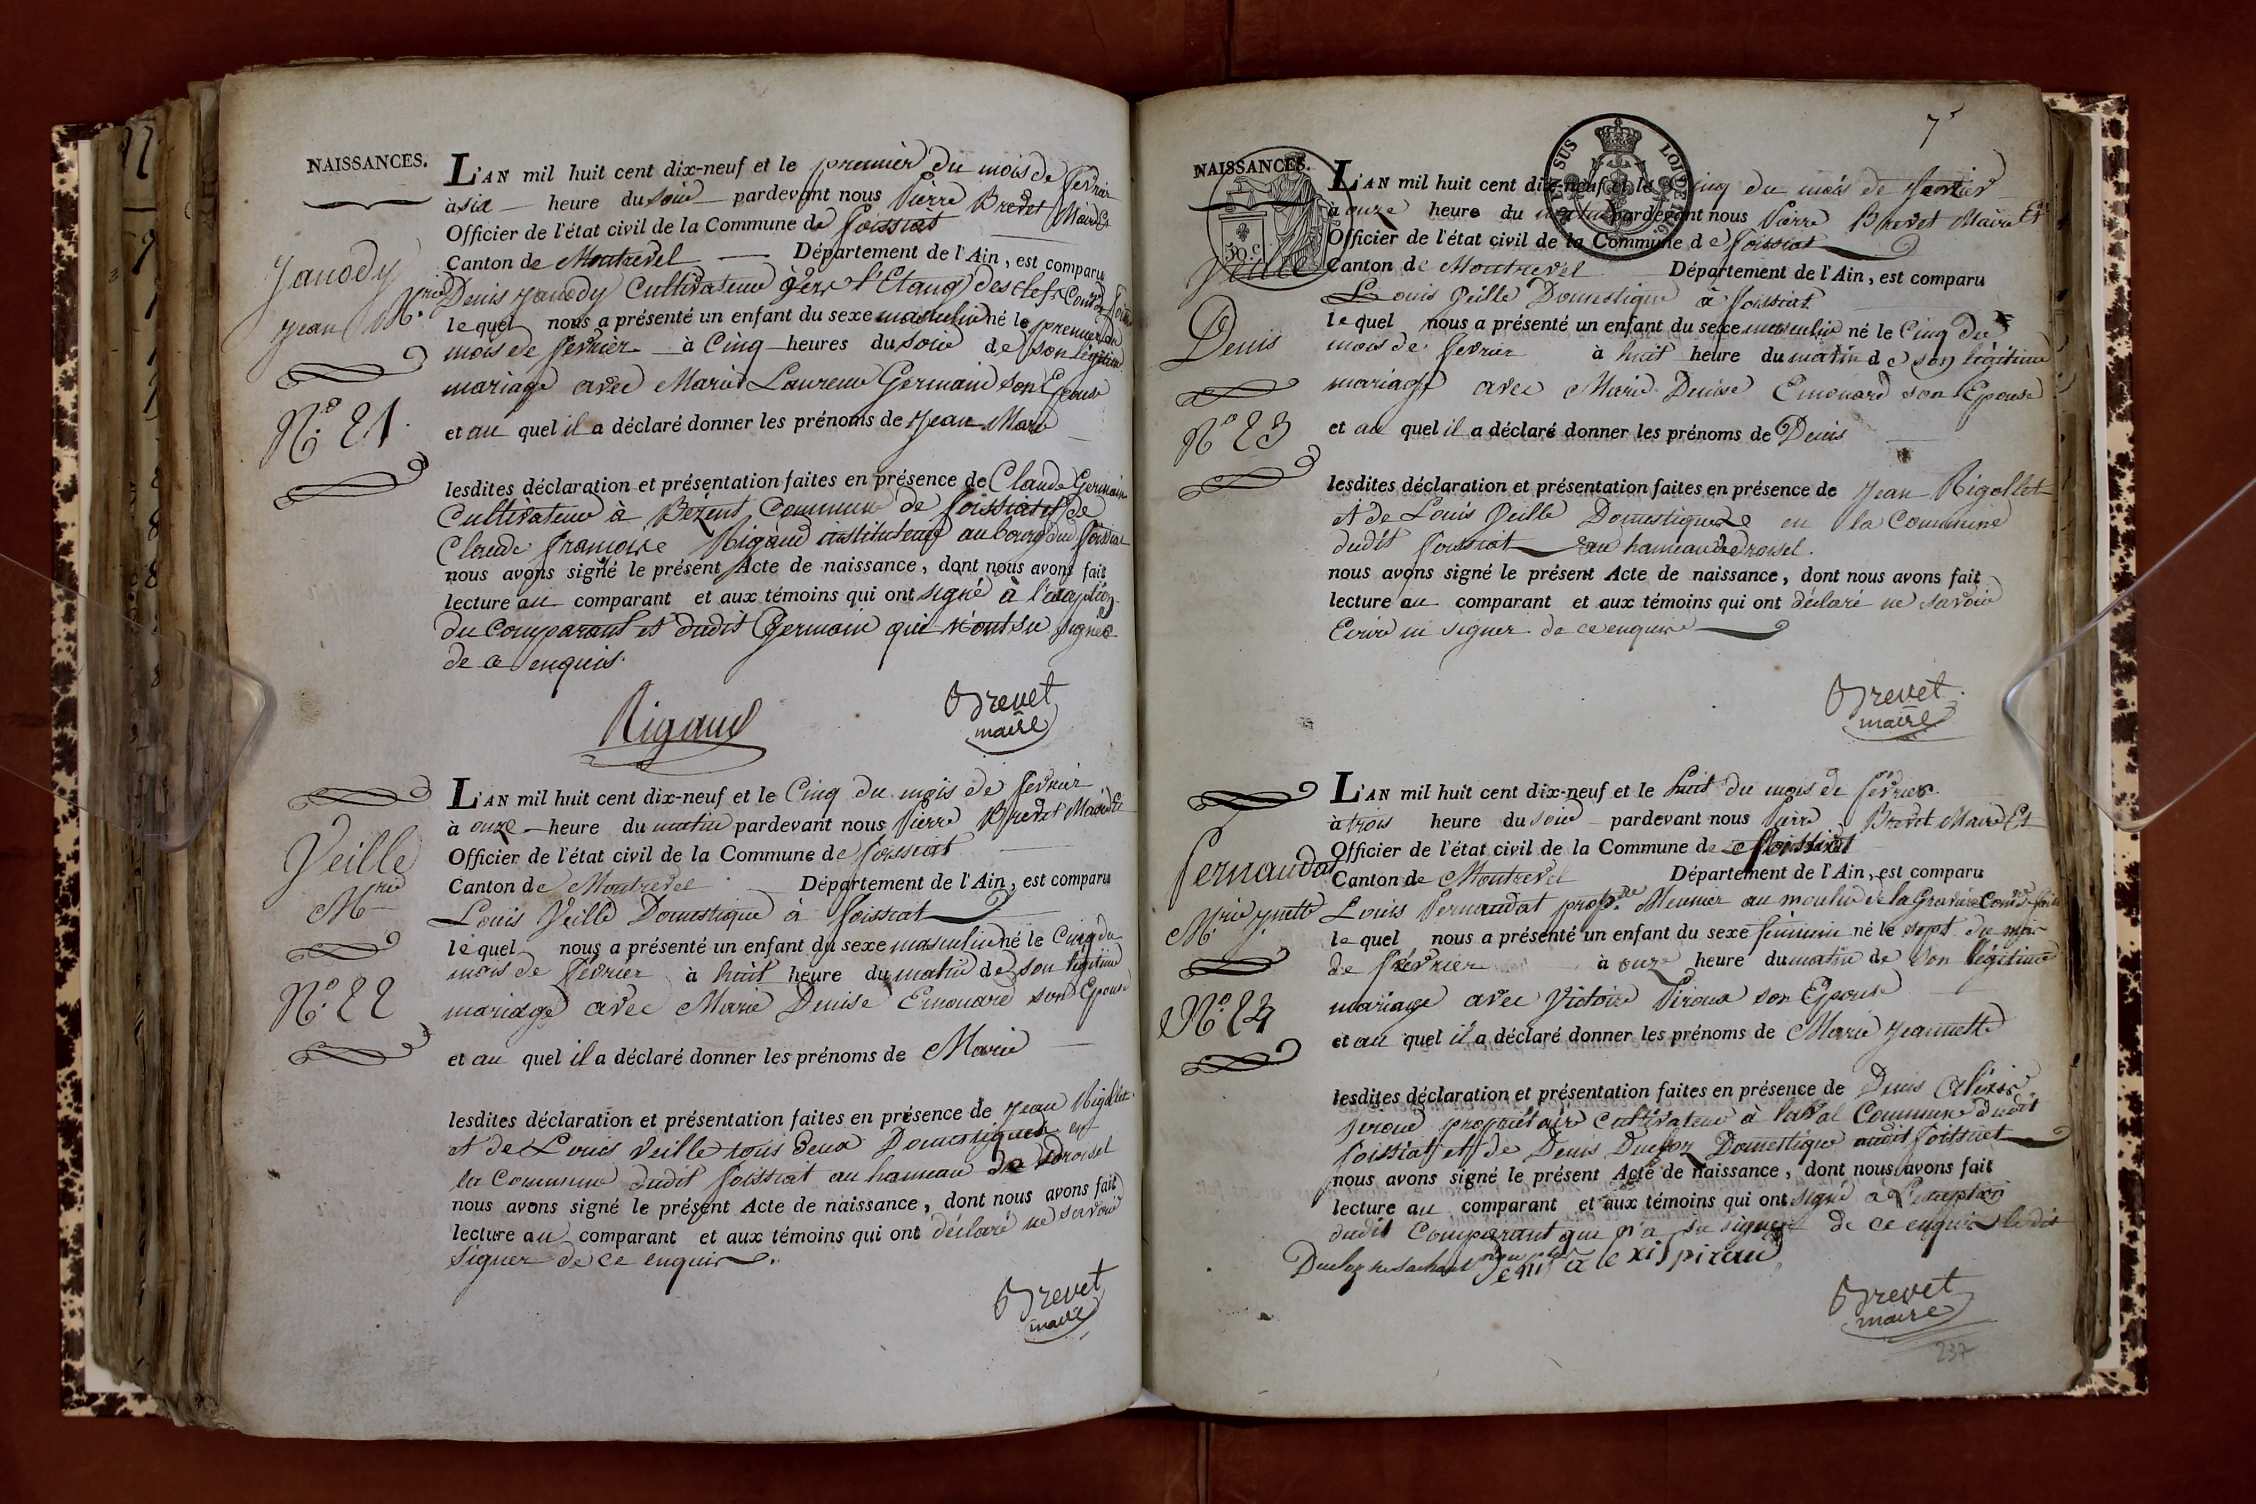 NAISSANCES.
Janody
Jean M.rie
N.o 21.
L'AN mil huit cent dix-neuf et le premier du mois de fevrier
à six heure du soir pardevant nous Pierre Brevet Maire Et
Officier de l'état civil de la Commune de foissiat
Canton de Montrevel Département de l'Ain, est comparu
Denis Janody Cultivateur l'Etang des clefs
le quel nous a présenté un enfant du sexe masculin né le premier du
mois de fevrier à Cinq heures du soir de son légitime
mariage avec Marie Laurence Germain son Epouse
et au quel il a déclaré donner les prénoms de Jean Marie
lesdites déclaration et présentation faites en présence de Claude Germain
Cultivateur à Bézent Commune de foissiat et de
Claude françois Rigaud instituteur au bourg dud foissiat
nous avons signé le présent Acte de naissance, dont nous avons fait
lecture au comparant et aux témoins qui ont signé à l'exception
du comparant et dudit Germain qui n'ont su signer
de ce enquis.
Rigaud
Brevet
maire
Veille
M.rie
N.o 22
L'AN mil huit cent dix-neuf et le Cinq du mois de fevrier
à onze heure du matin pardevant nous Pierre Brevet Maire Et
Officier de l'état civil de la Commune de foissiat
Canton de Montrevel Département de l'Ain, est comparu
Louis Veille Domestique à foissiat
le quel nous a présenté un enfant du sexe masculin né le Cinq du
mois de fevrier à huit heure du matin de son légitime
mariage avec Marie Denise Emonard son Epouse
et au quel il a déclaré donner les prénoms de Marie
lesdites déclaration et présentation faites en présence de Jean Rigollet
et de Louis Veille tous deux Domestiques en
la Commune dudit foissiat au hameau de
nous avons signé le présent Acte de naissance, dont nous avons fait
lecture au comparant et aux témoins qui ont déclaré ne savoir
signer de ce enquis.
Brevet
maire
7
NAISSANCES.
50 C.
LOI DE 1816.
Veille
Denis
N.o 23
L'AN mil huit cent dix-neuf et le Cinq du mois de fevrier
à onze heure du matin pardevant nous Pierre Brevet Maire Et
Officier de l'état civil de la Commune de foissiat
Canton de Montrevel Département de l'Ain, est comparu
Louis Veille Domestique à foissiat
le quel nous a présenté un enfant du sexe masculin né le Cinq du
mois de fevrier à huit heure du matin de son légitime
mariage avec Marie Denise Emonard son Epouse
et au quel il a déclaré donner les prénoms de Denis
lesdites déclaration et présentation faites en présence de Jean Rigollet
et de Louis Veille Domestiques en la Commune
dudit foissiat au hameau de
nous avons signé le présent Acte de naissance, dont nous avons fait
lecture au comparant et aux témoins qui ont déclaré ne savoir
Ecrire ni signer de ce enquis
Brevet
maire
fernaudat
M.rie J.nette
N.o 24
L'AN mil huit cent dix-neuf et le huit du mois de février
à trois heure du soir pardevant nous Pierre Brevet Maire Et
Officier de l'état civil de la Commune de foissiat
Canton de Montrevel Département de l'Ain, est comparu
Louis Fernaudat Meunier au moulin de la
le quel nous a présenté un enfant du sexe féminin né le sept du mois
de février à onze heure du matin de son légitime
mariage avec Victoire Piroux son Epouse
et au quel il a déclaré donner les prénoms de Marie Jeannette
lesdites déclaration et présentation faites en présence de Denis Alexis
Piroud propriétaire Cultivateur à laval Commune dudit
foissiat et de Denis Duclos Domestique audit foissiat
nous avons signé le présent Acte de naissance, dont nous avons fait
lecture au comparant et aux témoins qui ont signé à l'exception
dudit Comparant que n'a su signer de ce enquis ledit
Duclos ne sachant non plus
denis alexis piraud
Brevet
maire
237